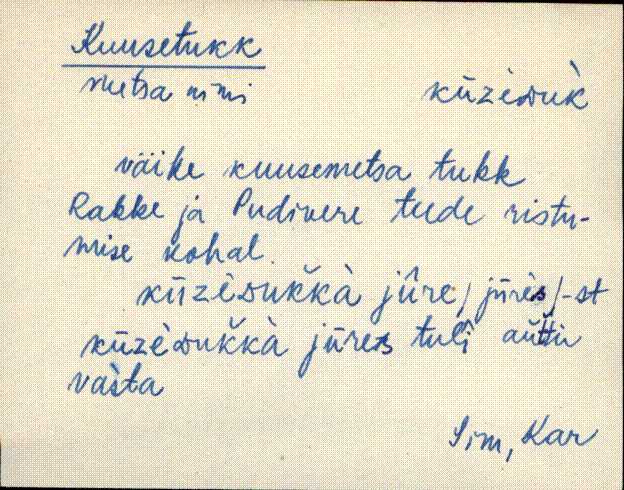 Kuusetukk
metsa nimi kūzèᴅuk̀
väike kuusemetsa tukk
Rakke ja Pudivere teede ristu-
mise kohal.
kūzèᴅuk̆kà jūre / jūrès /-st
kūzèᴅuk̆kà jūres tulì
vasta
Sim, Kar